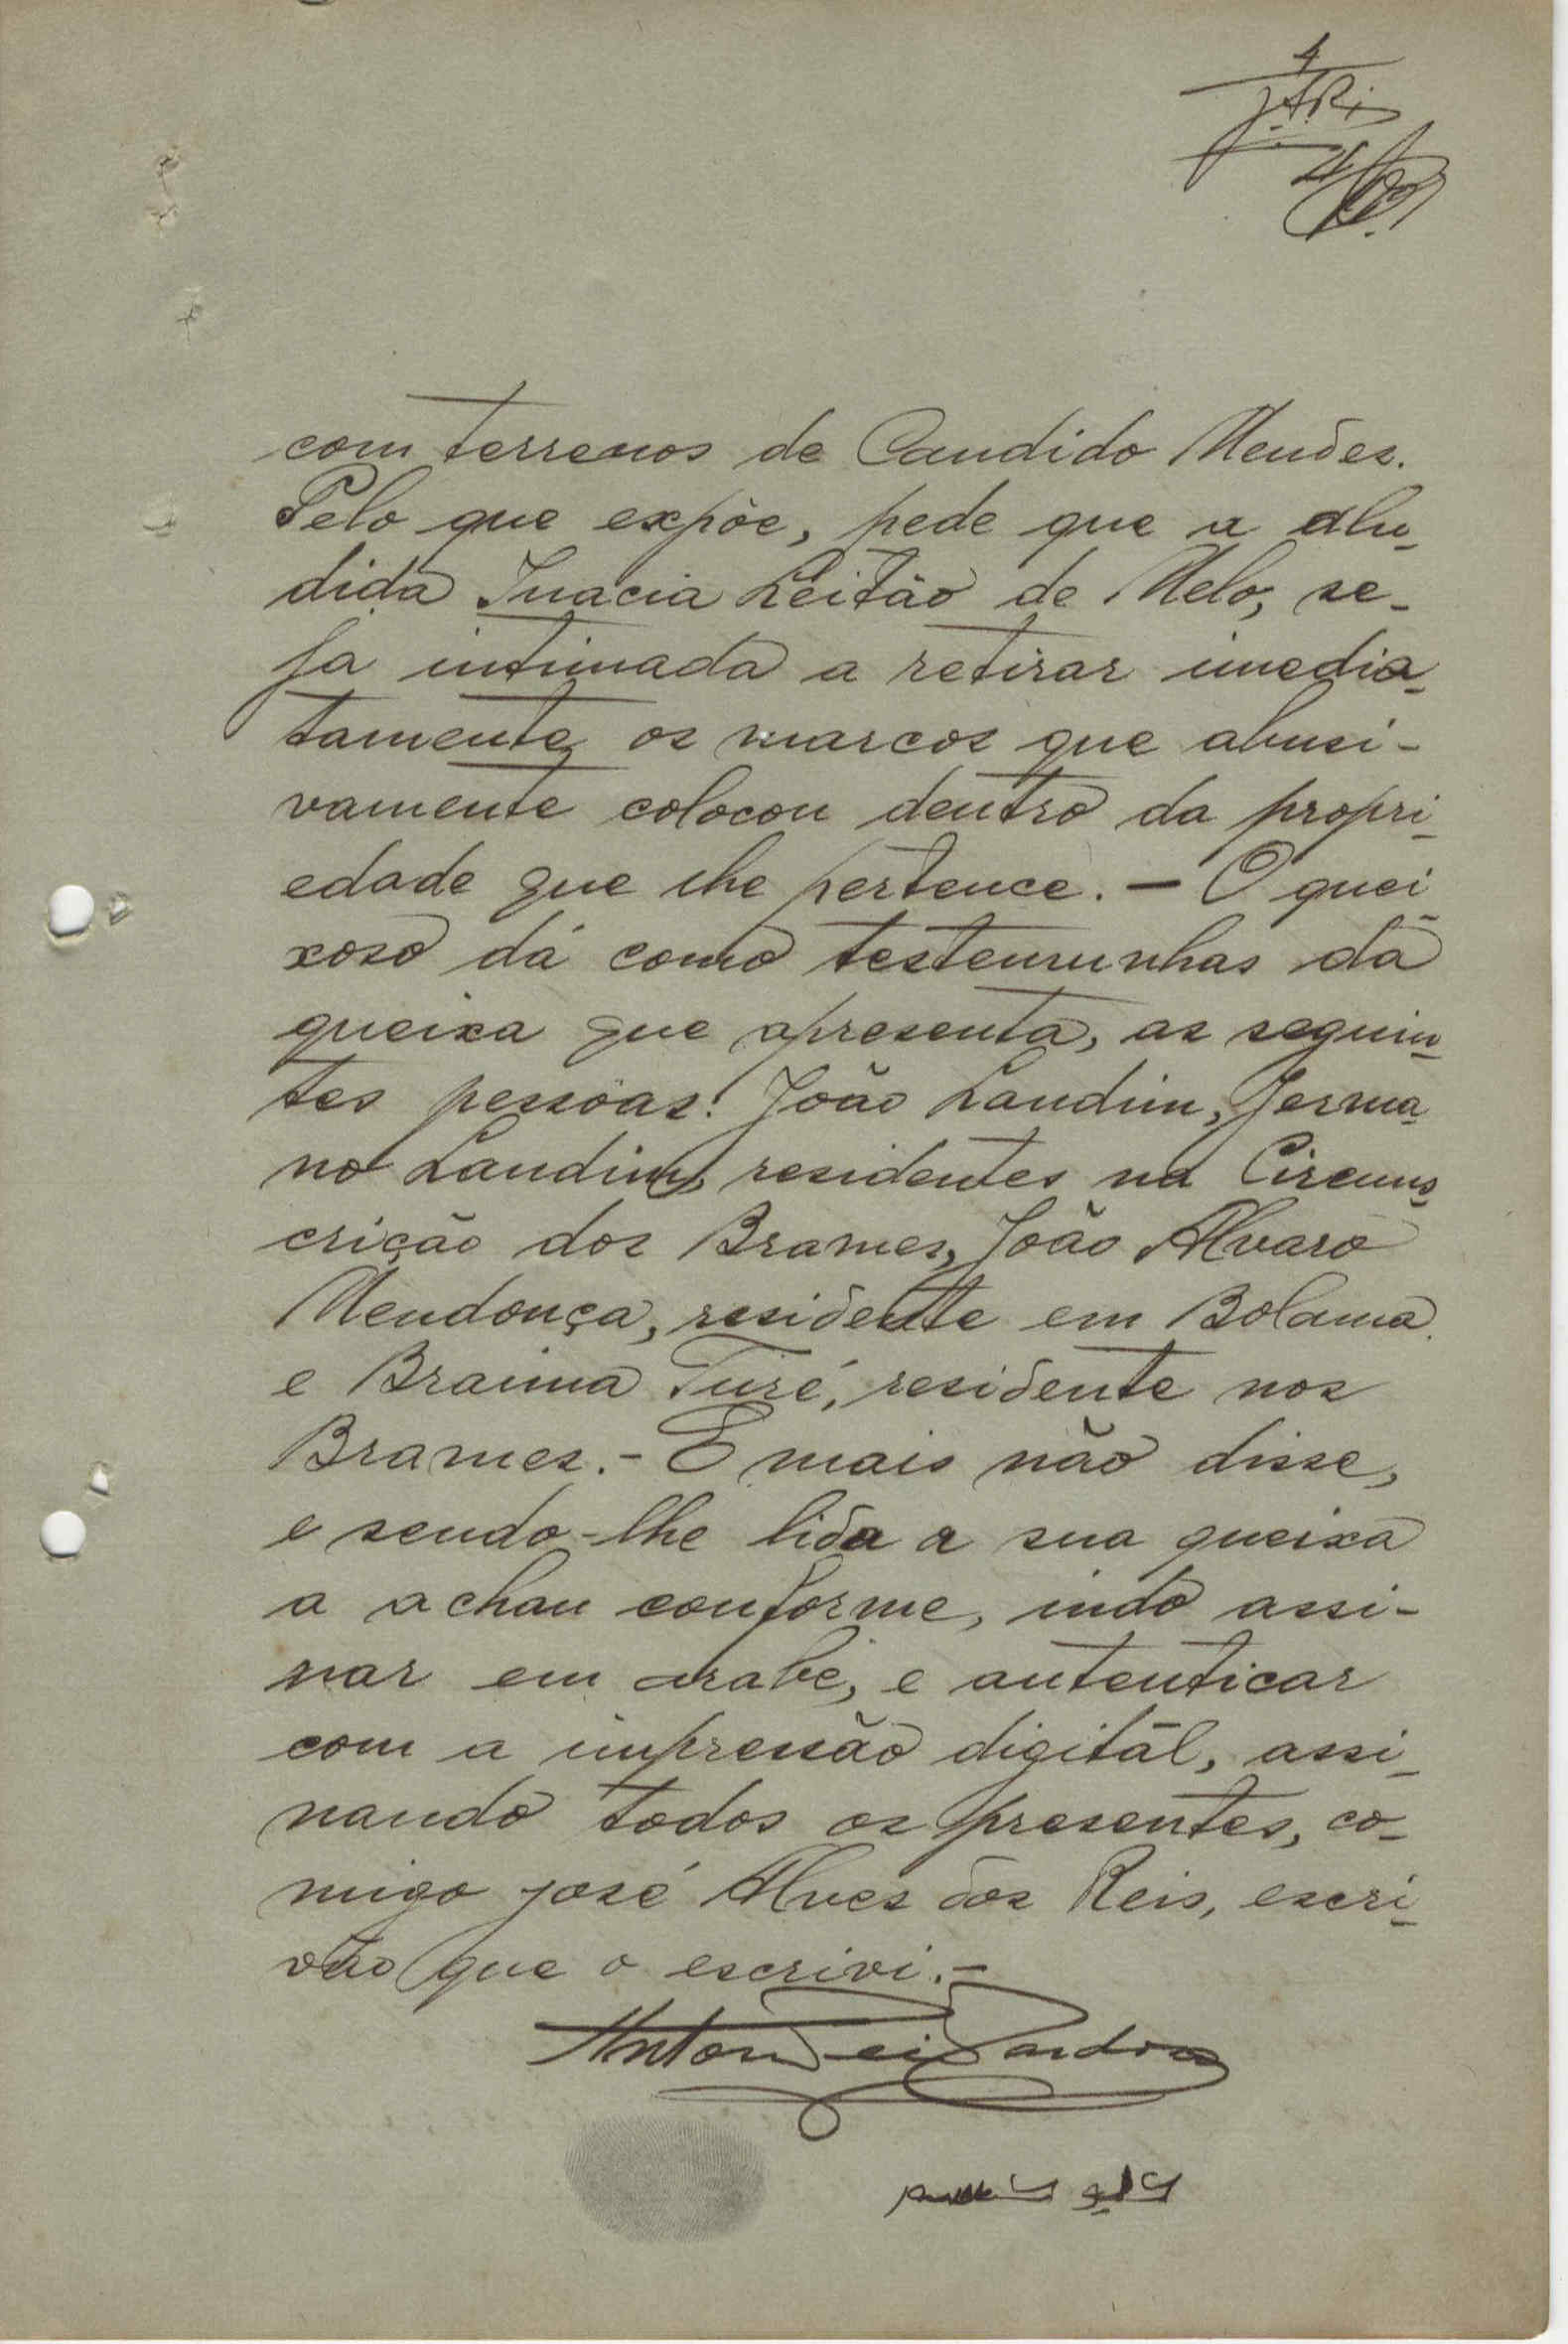 4
com terrenos de Candido Mendes.
Pelo que expõe, pede que a alu-
dida Inacia Leitão de Melo, se-
ja intimada a retirar imedia-
tamente os marcos que abusi-
vamente colocou dentro da propri-
edade que lhe pertence. — O quei-
xoso dá como testemunhas da
queixa que apresenta, as seguin-
tes pessoas: João Landim, Jerma-
no Landim, residentes na Circuns-
crição dos Brames, João Alvaro
Mendonça, residente em Bolama
e Braima Turé, residente nos
Brames.- E mais não disse,
e sendo-lhe lida a sua queixa
a achou conforme, indo assi-
nar em arabe, e autenticar
com a impressão digitál, assi-
nando todos os presentes, co-
migo José Alves dos Reis, escri-
vão que o escrivi.-